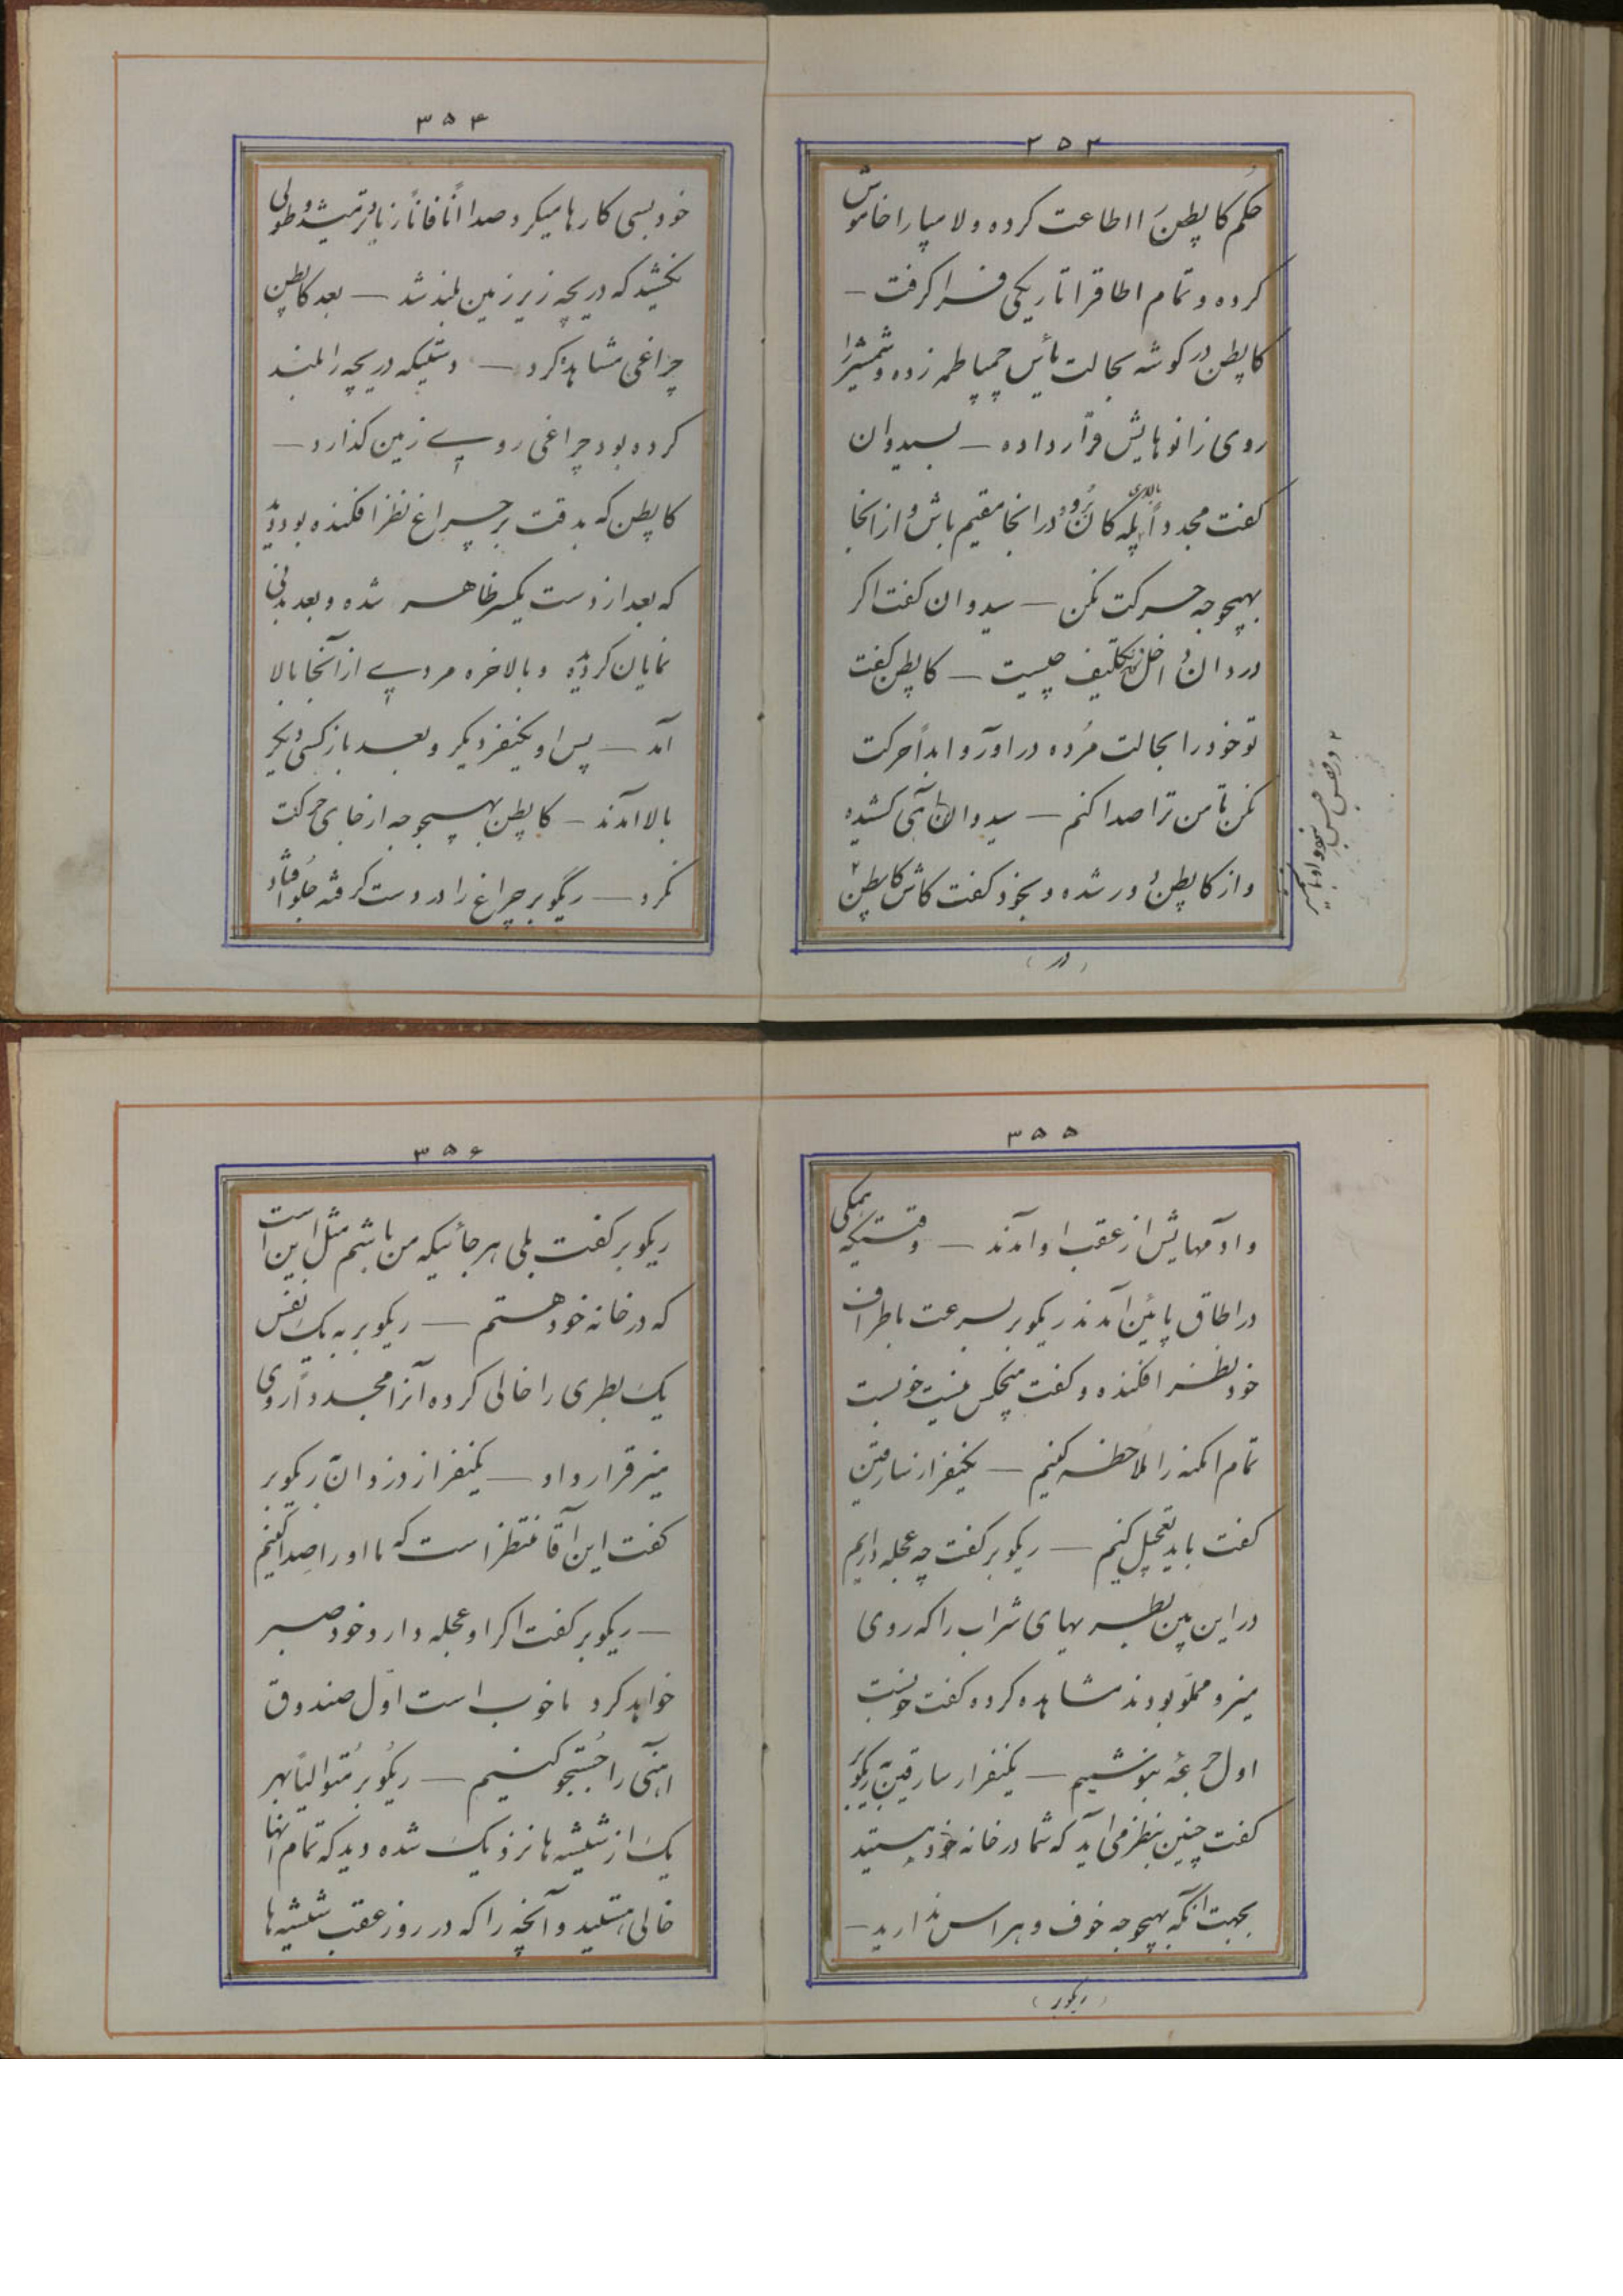 ۳۵۳
حکم کاپطن را اطاعت کرده و لامپا را خاموش
کرده و تمام اطاقرا تاریکی فرا گرفت —
کاپطن در گوشه بحالت یأس چمپاطمه زده و شمشیر را
روی زانوهایش قرار داده — بسیدوان
گفت مجدداً بالای پله کان برو و در انجا مقیم باش و از انجا
بهیچوجه حرکت مکن — سیدوان گفت اگر
دزدان داخل شدند تکلیف چیست — کاپطن گفت
تو خود را بحالت مُرده در اور و ابداً حرکت
مکن تا من ترا صدا کنم — سیدوان آهی کشیده
و از کاپطن دور شده و بخود گفت کاش کاپطن ۲
۲ در قفس حبس
(در)
۳۵۴
خود بسی کارها میکرد صدا اناًفاناً زیادتر میشد و طولی
نکشید که دریچه زیر زمین بلند شد — بعد کاپطن
چراغی مشاهده کرد — دستیکه دریچه را بلند
کرده بود چراغی روی زمین گذارد —
کاپطن که بدقت بر چراغ نظر افکنده بود دید
که بعد از دست یکسر ظاهر شده و بعد بدنی
نمایان گردید و بالاخره مردی از آنجا بالا
آمد — پس او یکنفر دیگر و بعد باز کسی دیگر
بالا آمدند — کاپطن بهیچوجه از جای حرکت
نکرد — ریگوبر چراغ را در دست گرفته جلو افتاد
۳۵۵
و ادمهایش از عقب او امدند — وقتیکه همگی
در اطاق پائین آمدند ریکوبر بسرعت باطراف
خود نظر افکنده و گفت هیچکس نیست خوبست
تمام امکنه را ملاحظه کنیم — یکنفر از سارقین
گفت باید تعجیل کنیم — ریکوبر گفت چه عجله داریم
در این بین بطریهای شراب را که روی
میز و مملو بودند مشاهده کرده گفت خوبست
اول جرعهٔ بنوشیم — یکنفر از سارقین بریکوبر
گفت چنین بنظر می آید که شما در خانه خود هستید
بجهت انکه بهیچوجه خوف و هراس ندارید —
(ریکوبر)
۳۵۶
ریکوبر گفت بلی هر جائیکه من باشم مثل این است
که در خانه خود هستم — ریکوبر به یک نفس
یک بطری را خالی کرده آنرا مجدداً روی
میز قرار داد — یکنفر از دزدان بریکوبر
گفت این آقا منتظر است که ما او را صدا کنیم
— ریکوبر گفت اگر او عجله دارد خود صبر
خواهد کرد ما خوب است اول صندوق
اهنی را جُستجو کنیم — ریکوبر مُتوالیاً بهر
یک از شیشه ها نزدیک شده دید که تمام انها
خالی هستند و آنچه را که در روز عقب شیشه ها